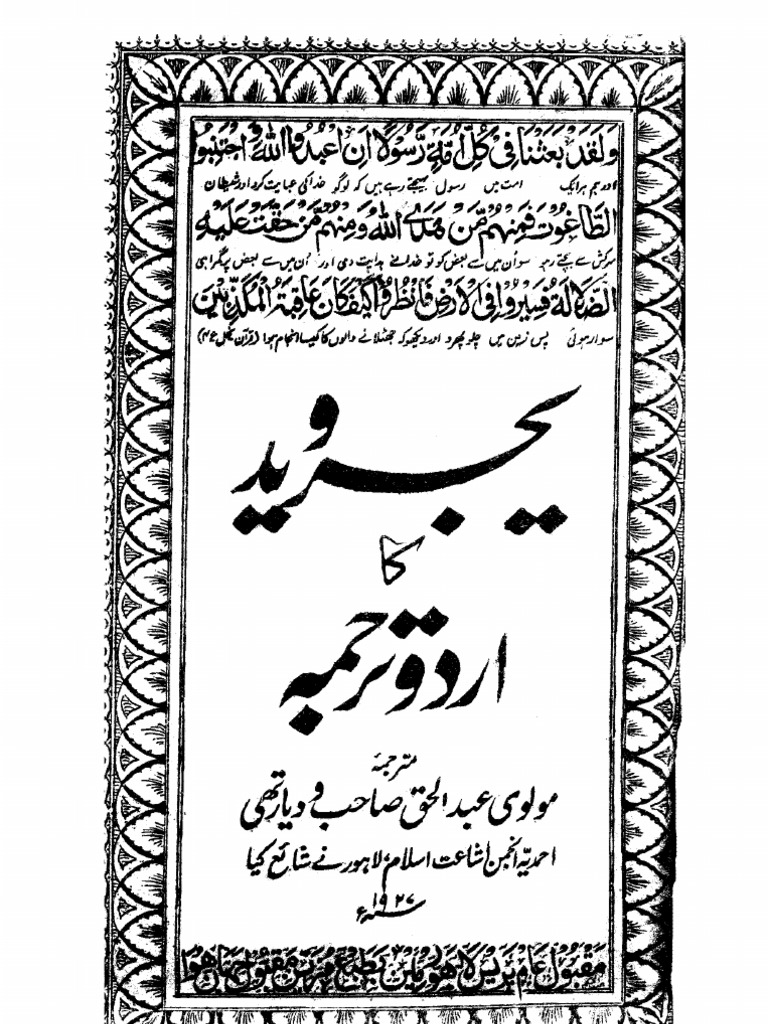 وَلَقَدْ بَعَثْنَا فِي كُلِّ أُمَّةٍ رَّسُولًا اَنِ اعْبُدُوا اللّٰهَ وَ اجْتَنِبُو
اور ہم ہر ایک امت میں رسول بھیجتے رہے ہیں کہ لوگو خدا کی عبادت کرو اور شیطان
الطَّاغُوْتَ فَمِنْهُمْ مَّنْ هَدَى اللّٰهُ وَمِنْهُمْ مَّنْ حَقَّتْ عَلَيْهِ
سرکش سے بچتے رہو سو اُن میں سے بعض کو تو خدا نے ہدایت دی اور اُن میں سے بعض پر گمراہی
الضَّلَالَةُ فَسِيْرُوْا فِي الْاَرْضِ فَانْظُرُوْا كَيْفَ كَانَ عَاقِبَةُ الْمُكَذِّبِيْنَ
سوار ہوئی پس زمین میں چلو پھرو اور دیکھو کہ جھٹلانے والوں کا کیسا انجام ہوا (قرآن نحل ع۴)
یجروید
کا
اردو ترجمہ
مترجمۂ
مولوی عبد الحق صاحب ودیارتھی
احمدیہ انجمن اشاعت اسلام، لاہور نے شائع کیا
سنہ ۱۹۲۷ء
مقبول عام پریس لاہور میں